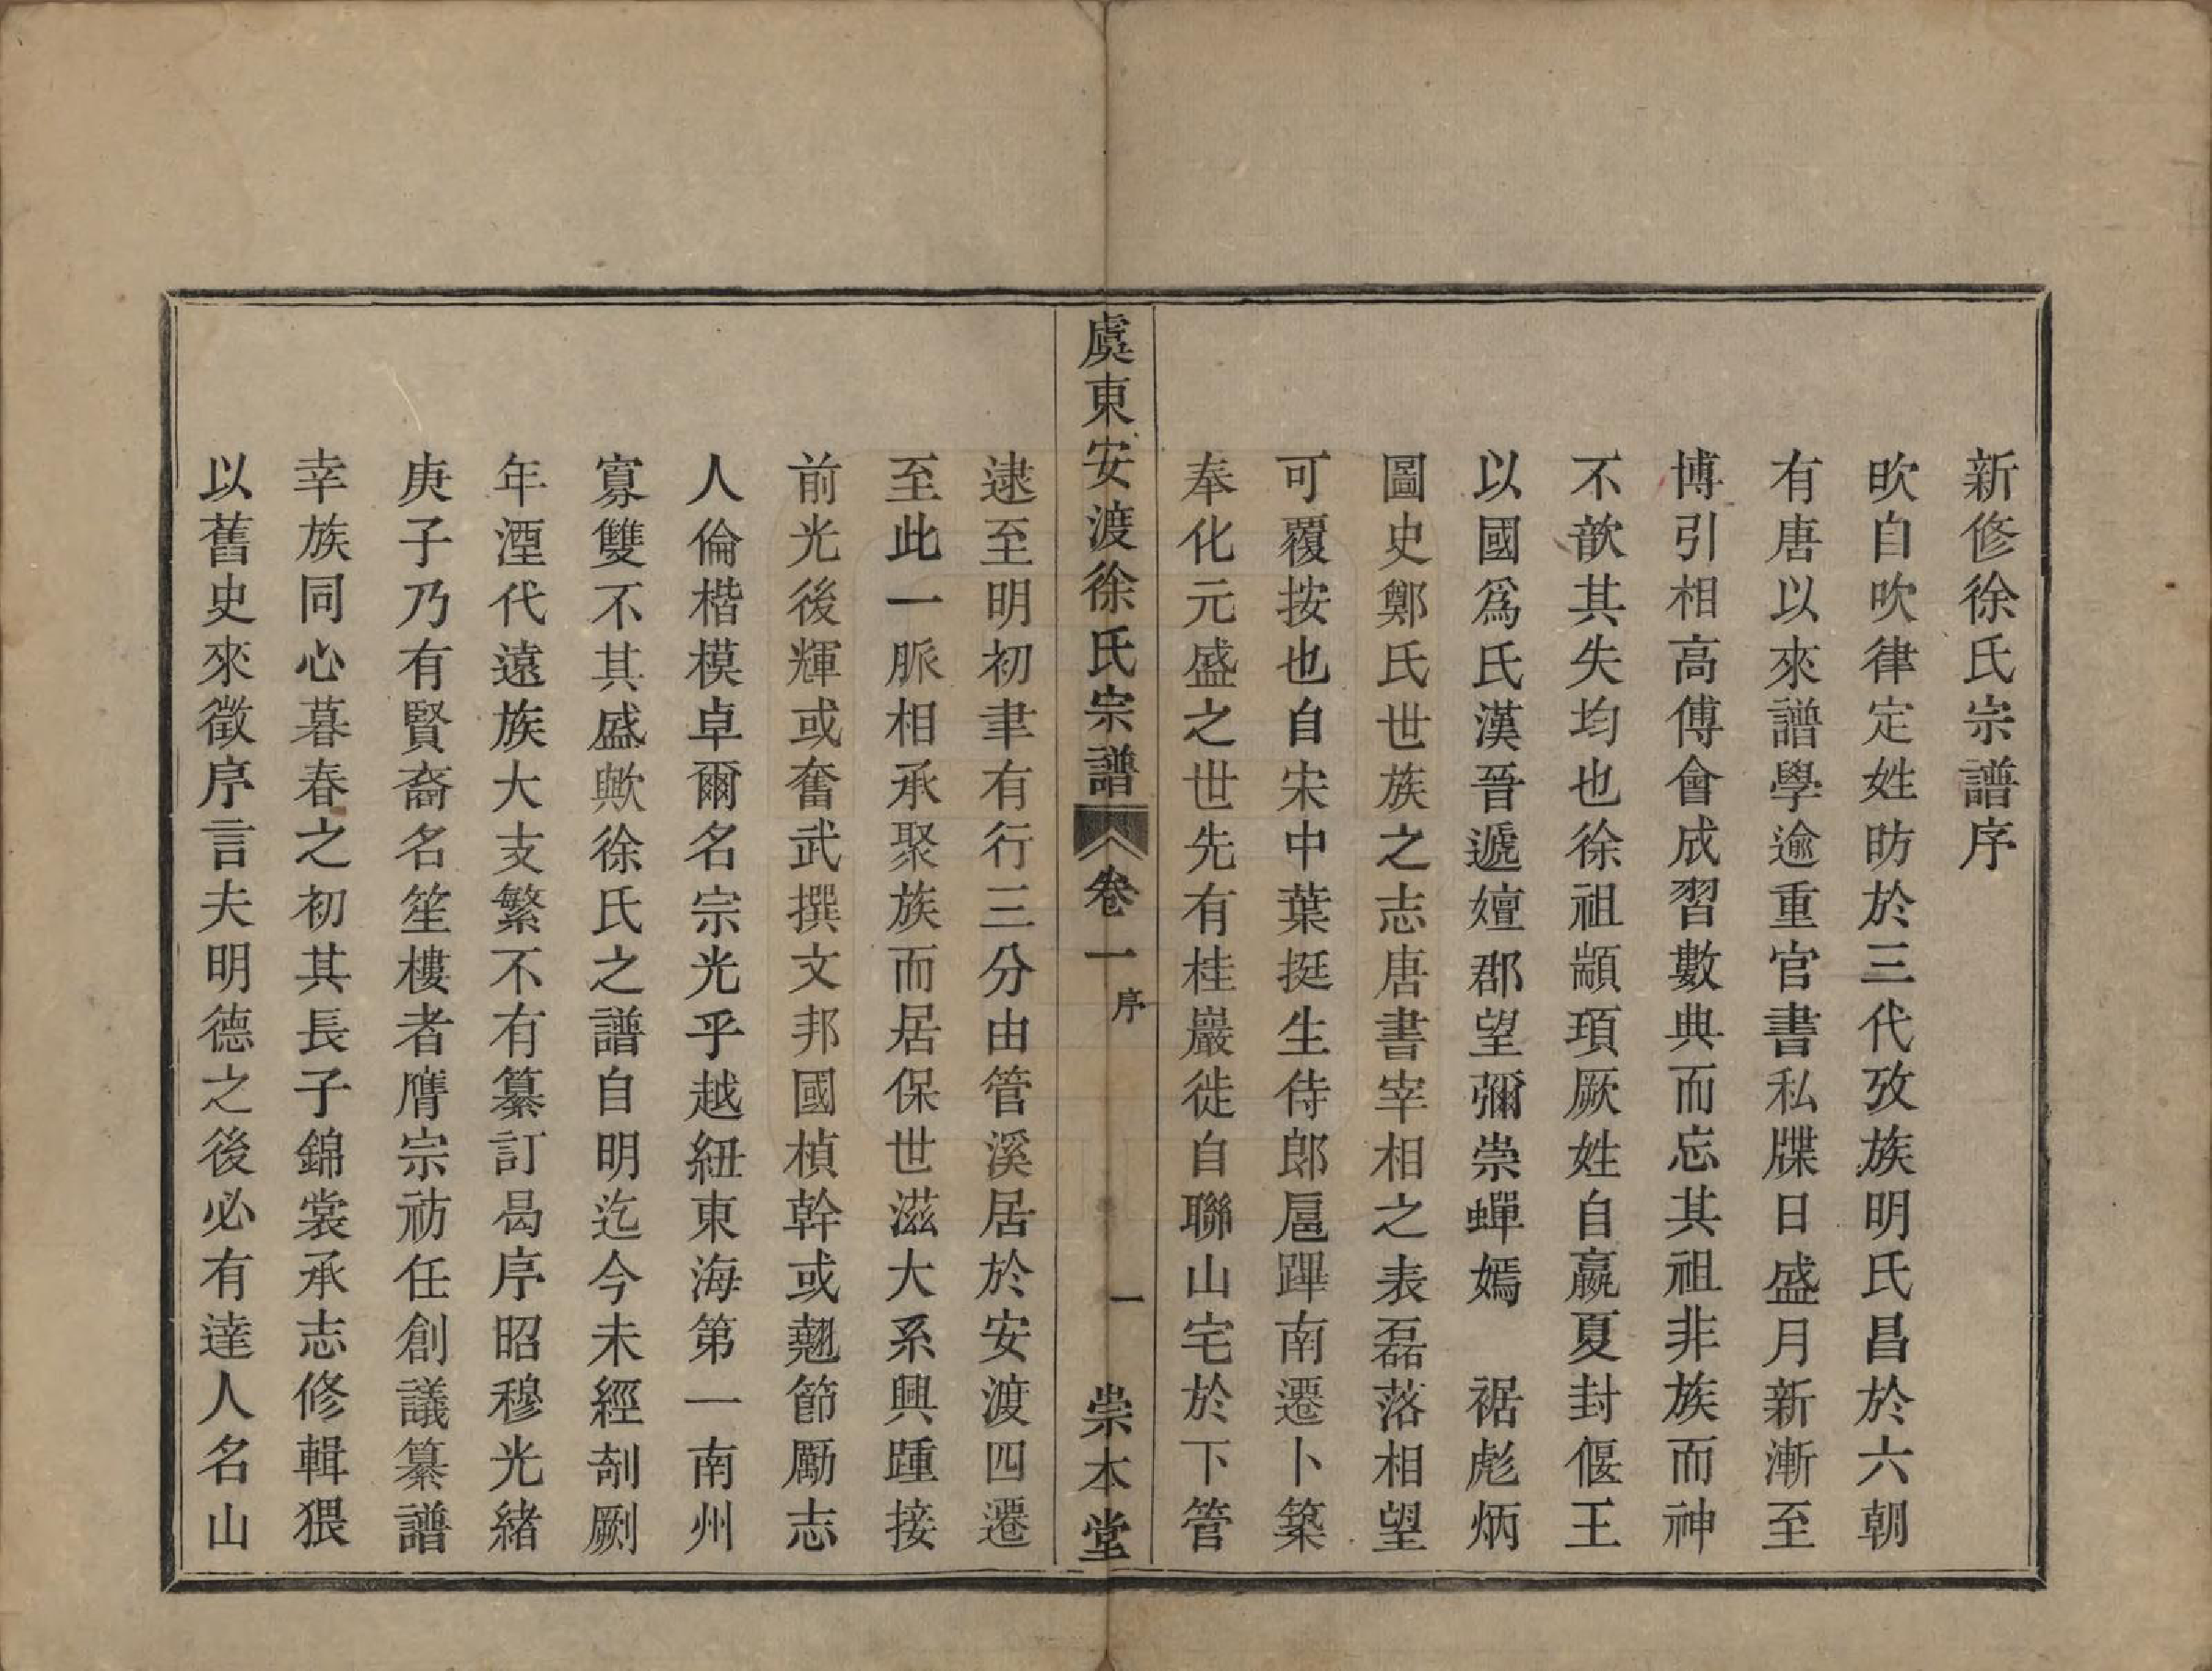 新修徐氏宗譜序
吹自吹律定姓昉於三代攷族明氏昌於六朝
有唐以來譜學逾重官書私牒日盛月新漸至
博引相高傅會成習數典而忘其祖非族而神
不歆其失均也徐祖顓頊厥姓自嬴夏封偃王
以國爲氏漢晉遞嬗郡望彌崇蟬嫣　裾彪炳
圖史鄭氏世族之志唐書宰相之表磊落相望
可覆按也自宋中葉挺生侍郎扈蹕南遷卜築
奉化元盛之世先有桂巖徙自聯山宅於下管
虞東安渡徐氏宗譜　卷一　序　一　崇本堂
逮至明初聿有行三分由管溪居於安渡四遷
至此一脈相承聚族而居保世滋大系興踵接
前光後輝或奮武撰文邦國楨幹或翹節勵志
人倫楷模卓爾名宗光乎越紐東海第一南州
寡雙不其盛歟徐氏之譜自明迄今未經剞劂
年湮代遠族大支繁不有纂訂曷序昭穆光緒
庚子乃有賢裔名笙樓者膺宗祊任創議纂譜
幸族同心暮春之初其長子錦裳承志修輯猥
以舊史來徵序言夫明德之後必有達人名山